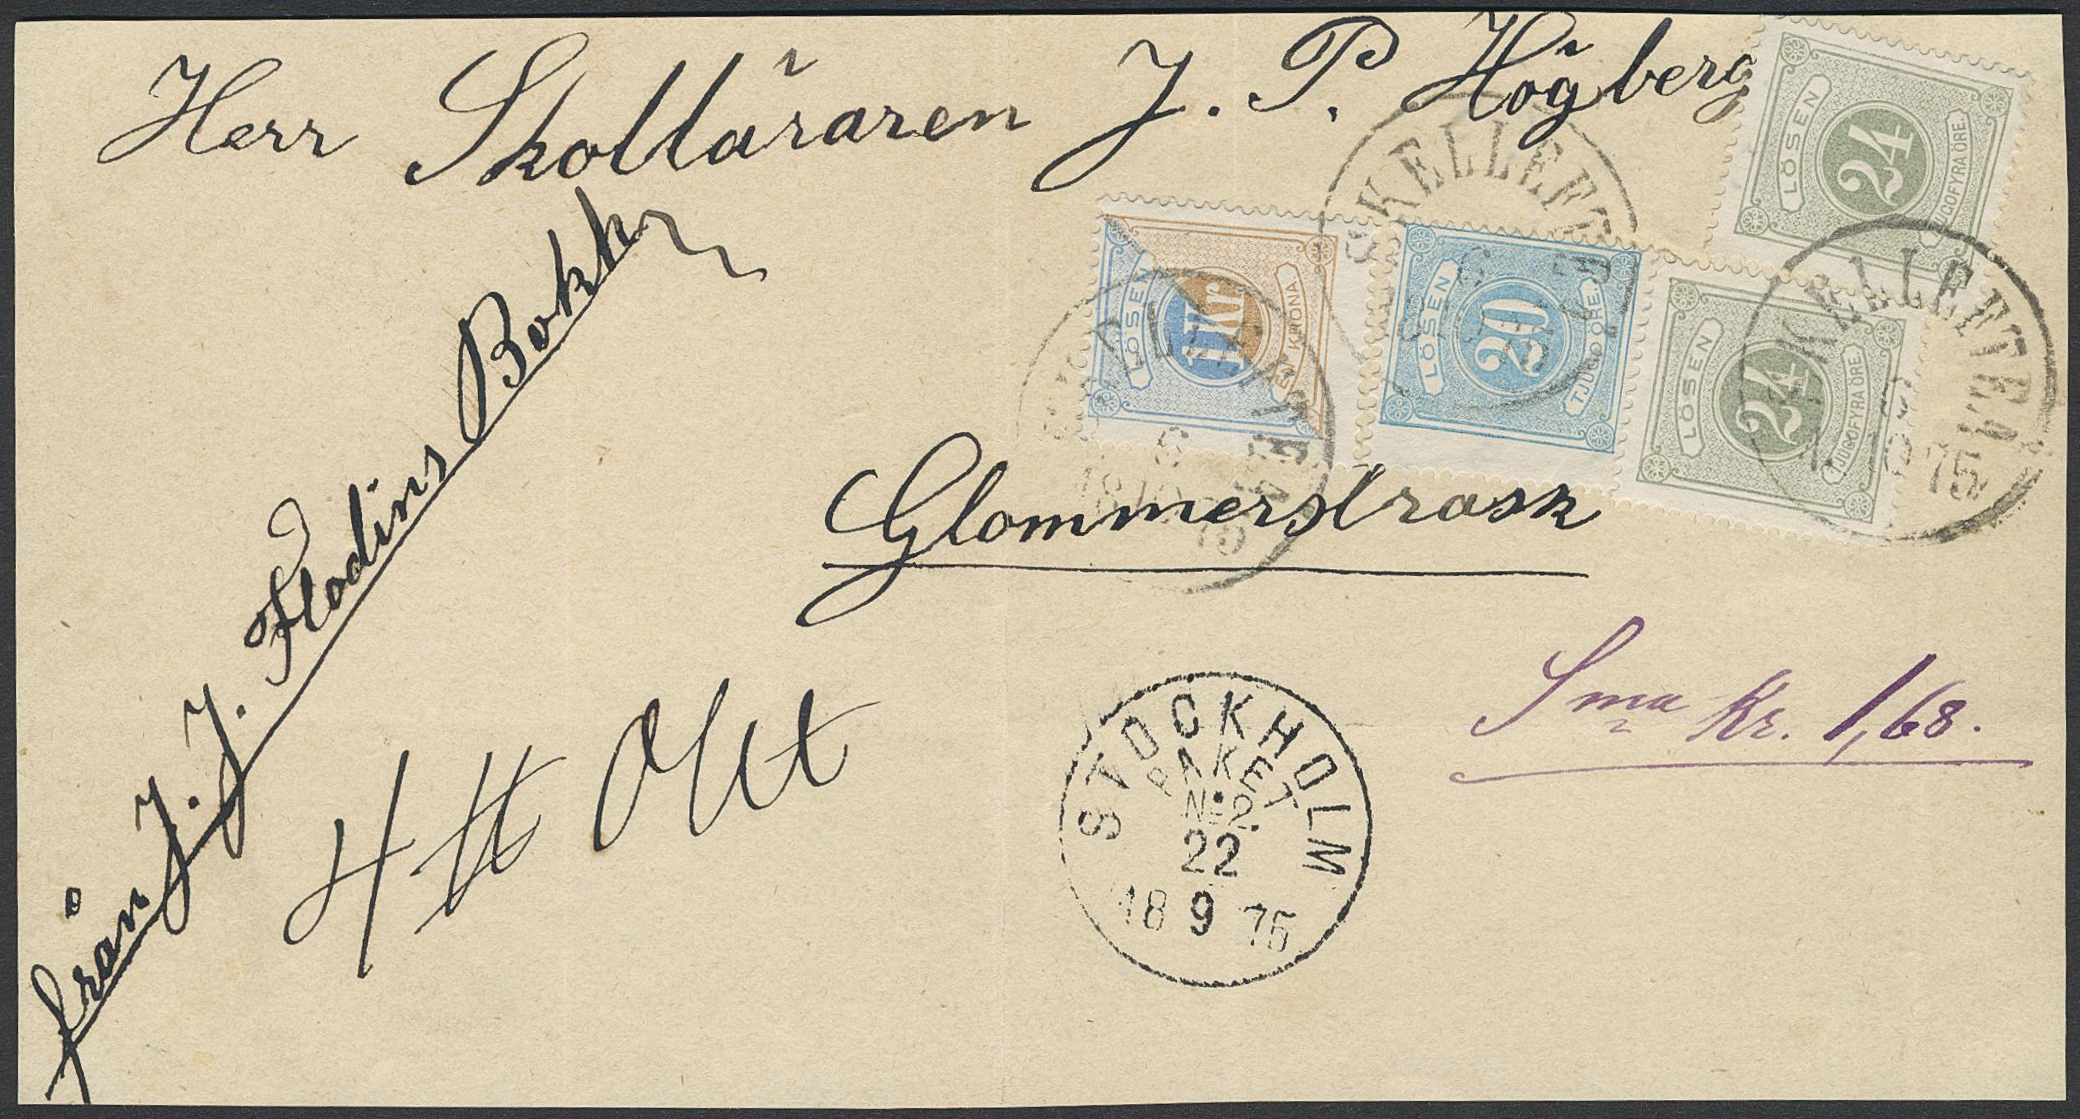 Herr Skolläraren J. P. Högberg
LÖSEN 24 TJUGOFYRA ÖRE.
LÖSEN 1 Kr EN KRONA.
LÖSEN 20 TJUGO ÖRE.
LÖSEN 24 TJUGOFYRA ÖRE.
SKELLEFTEÅ
SKELLEFTEÅ
SKELLEFTEÅ
Glommerstrask
från J. J. Flodins Bokh
Sma Kr. 1,68.
STOCKHOLM
PAKET
No 2.
22
18 9 75